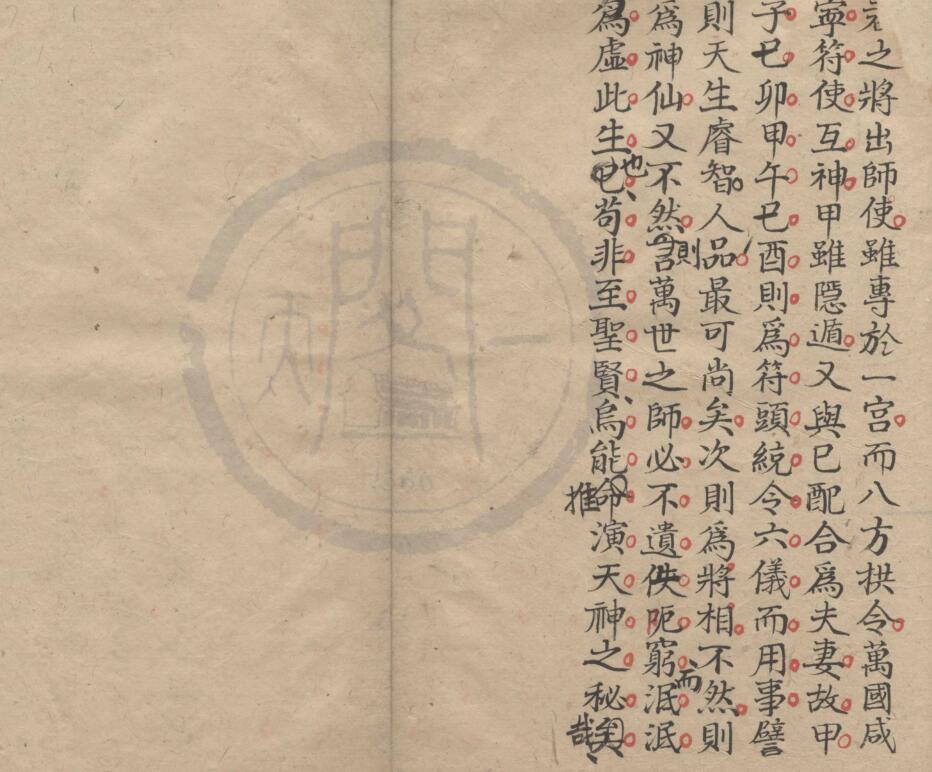 之將出師使雖專於一宫而八方拱令萬國咸
寧符使互神甲雖隱遁又與已配合爲夫妻故甲
子已卯甲午已酉則爲符頭統令六儀而用事譬
則天生睿智人品最可尚矣次則爲將相不然則
爲神仙又不然則萬世之師必不遺佚阨窮而泯泯
爲虛此生也苟非至聖賢烏能推演天神之秘哉